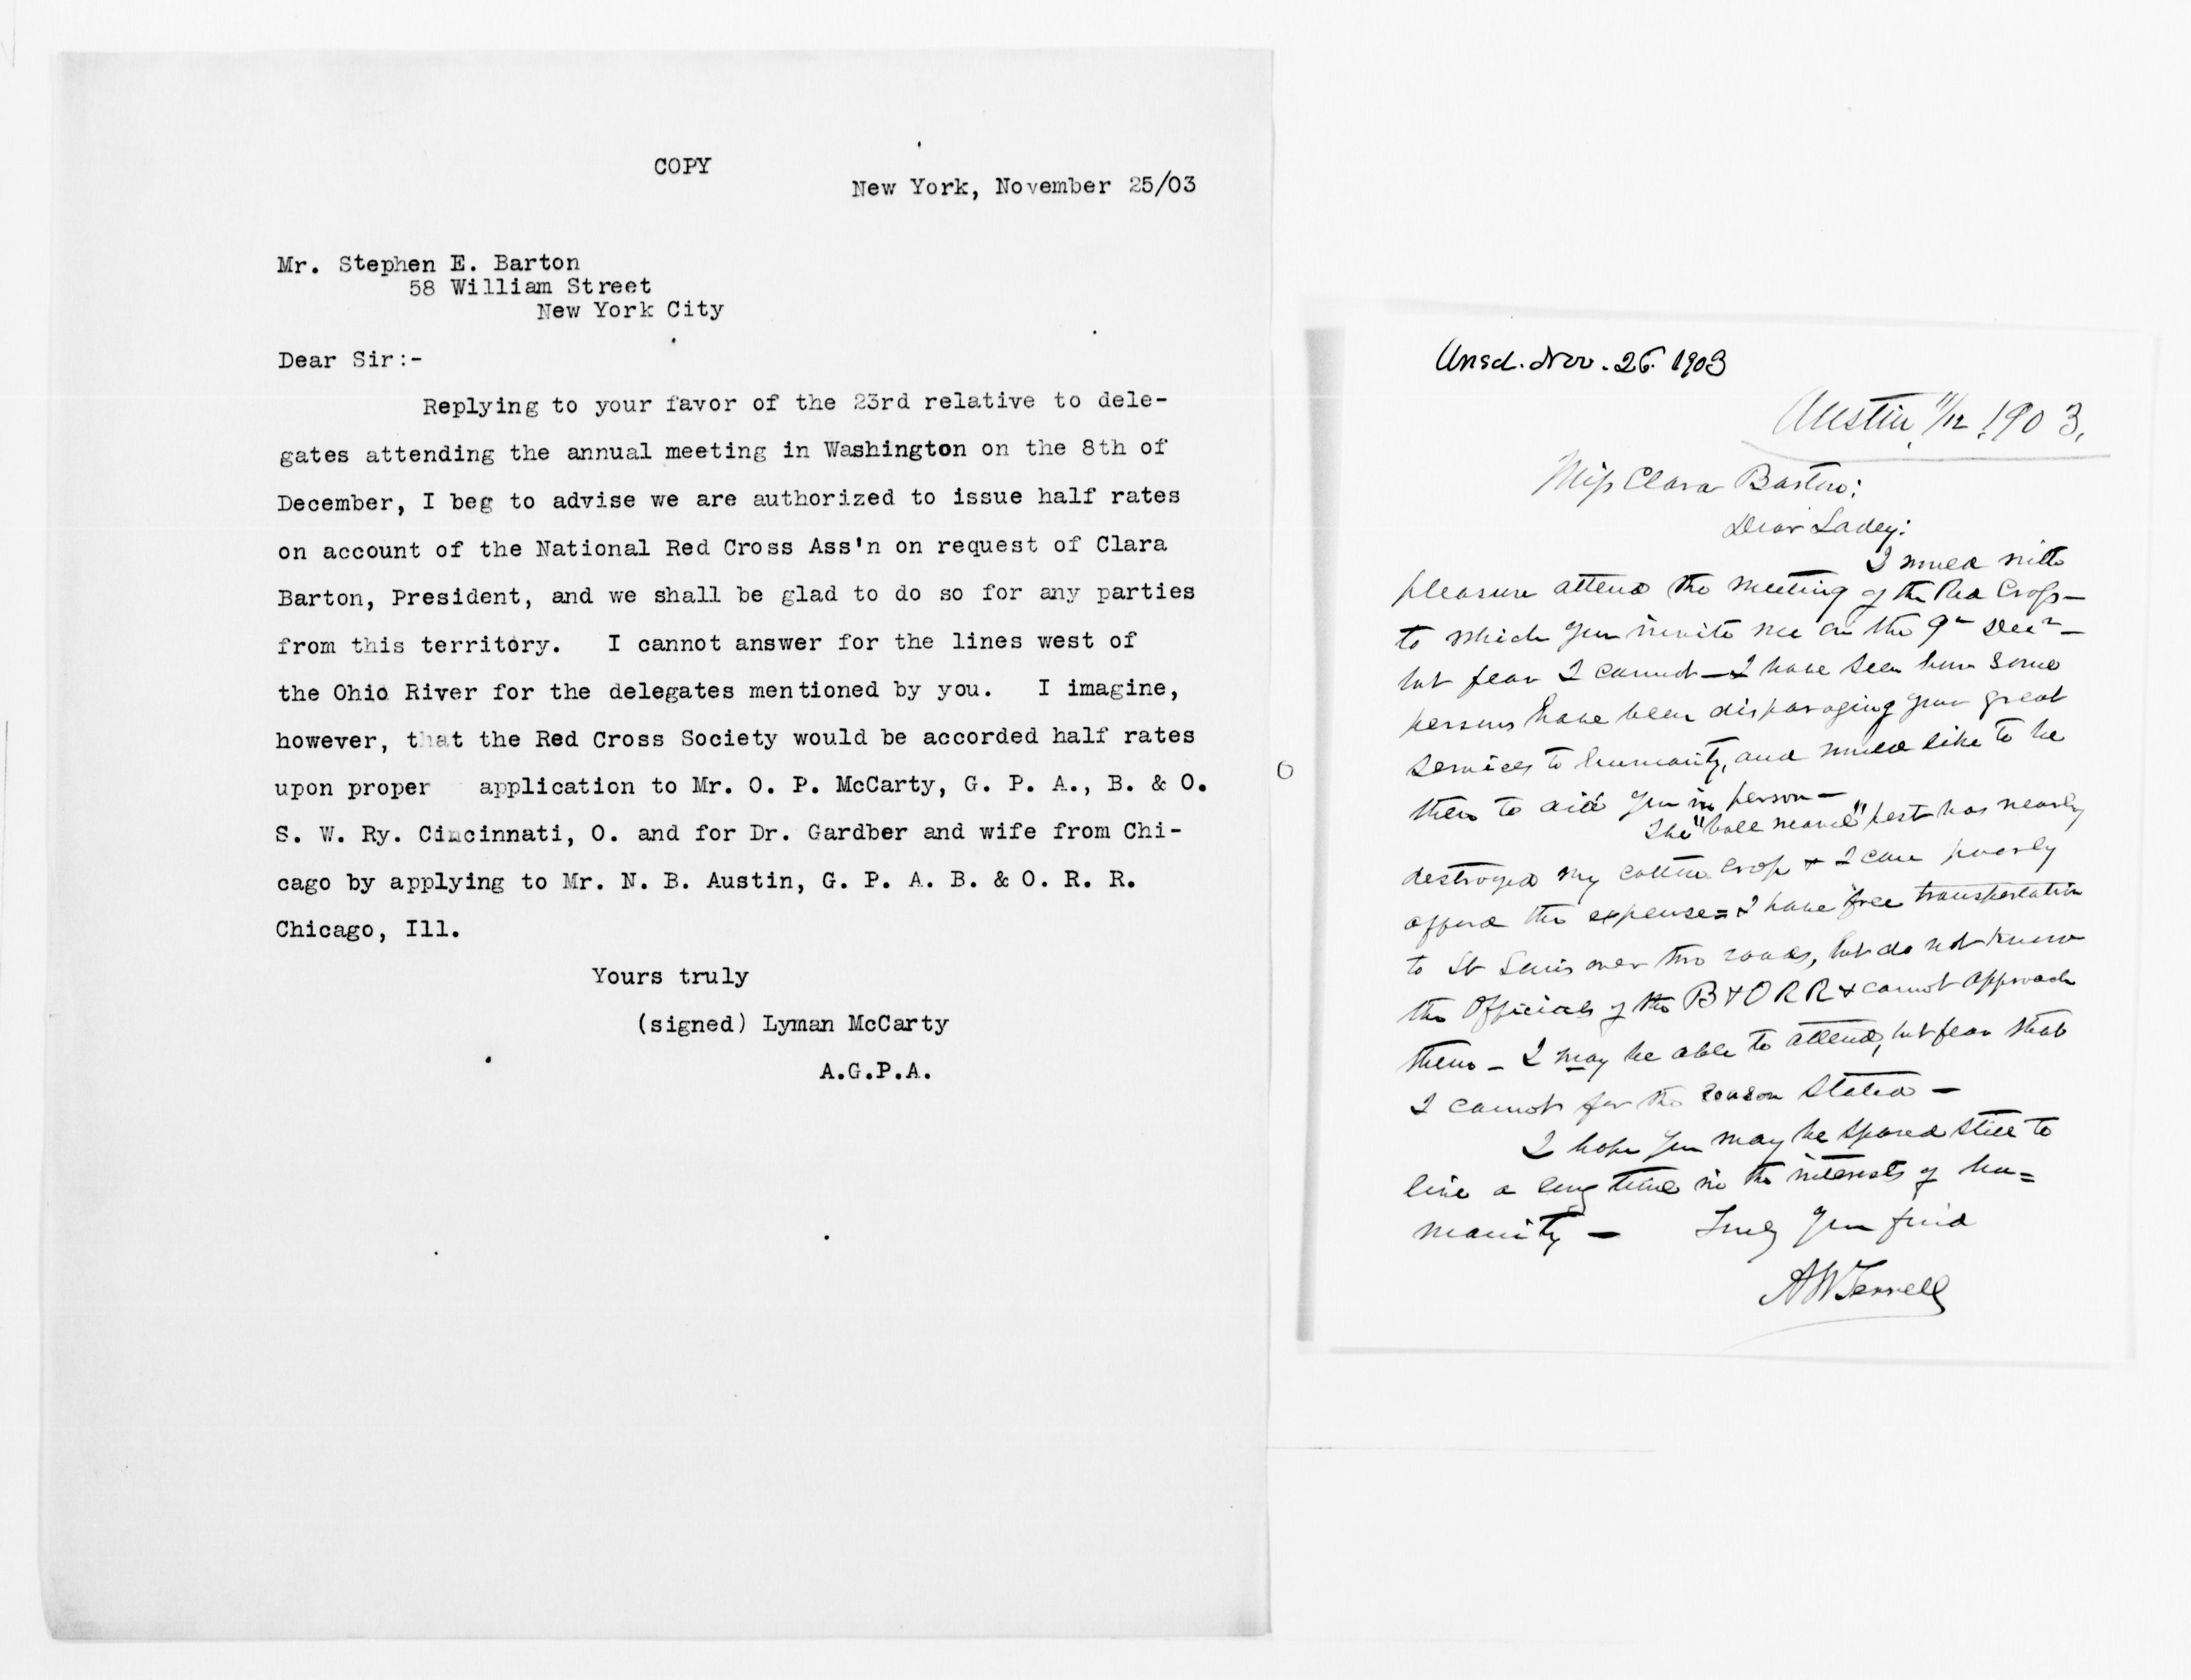 COPY
New York, November 25/03
Mr. Stephen E. Barton
58 William Street
New York City
Dear Sir:-
Replying to your favor of the 23rd relative to dele-
gates attending the annual meeting in Washington on the 8th of
December, I beg to advise we are authorized to issue half rates
on account of the National Red Cross Ass'n on request of Clara
Barton, President, and we shall be glad to do so for any parties
from this territory. I cannot answer for the lines west of
the Ohio River for the delegates mentioned by you. I imagine,
however, that the Red Cross Society would be accorded half rates
upon proper application to Mr. O. P. McCarty, G. P. A., B. & O.
S. W. Ry. Cincinnati, O. and for Dr. Gardber and wife from Chi-
cago by applying to Mr. N. B. Austin, G. P. A. B. & O. R. R.
Chicago, Ill.
Yours truly
(signed) Lyman McCarty
A.G.P.A.
Ansd. Nov. 26. 1903
Austin 11/12 1903.
Miss Clara Barton:
Dear Lady:
I would with
pleasure attend the meeting of the Red Cross—
to which you invite me on the 9th Decr—
but fear I cannot — I have seen how some
persons have been disparaging your great
services to humanity, and would like to be
there to aid you in person —
The "boll weavel" pest has nearly
destroyed my cotton crop & I can poorly
afford the expense = I have free transportation
to St Louis over two roads, but do not know
the Officials of the B & O R R & cannot approach
them — I may be able to attend, but fear that
I cannot for the reason stated —
I hope you may be spared still to
live a long time in the interests of hu=
manity — Truly your friend
A W Terrell